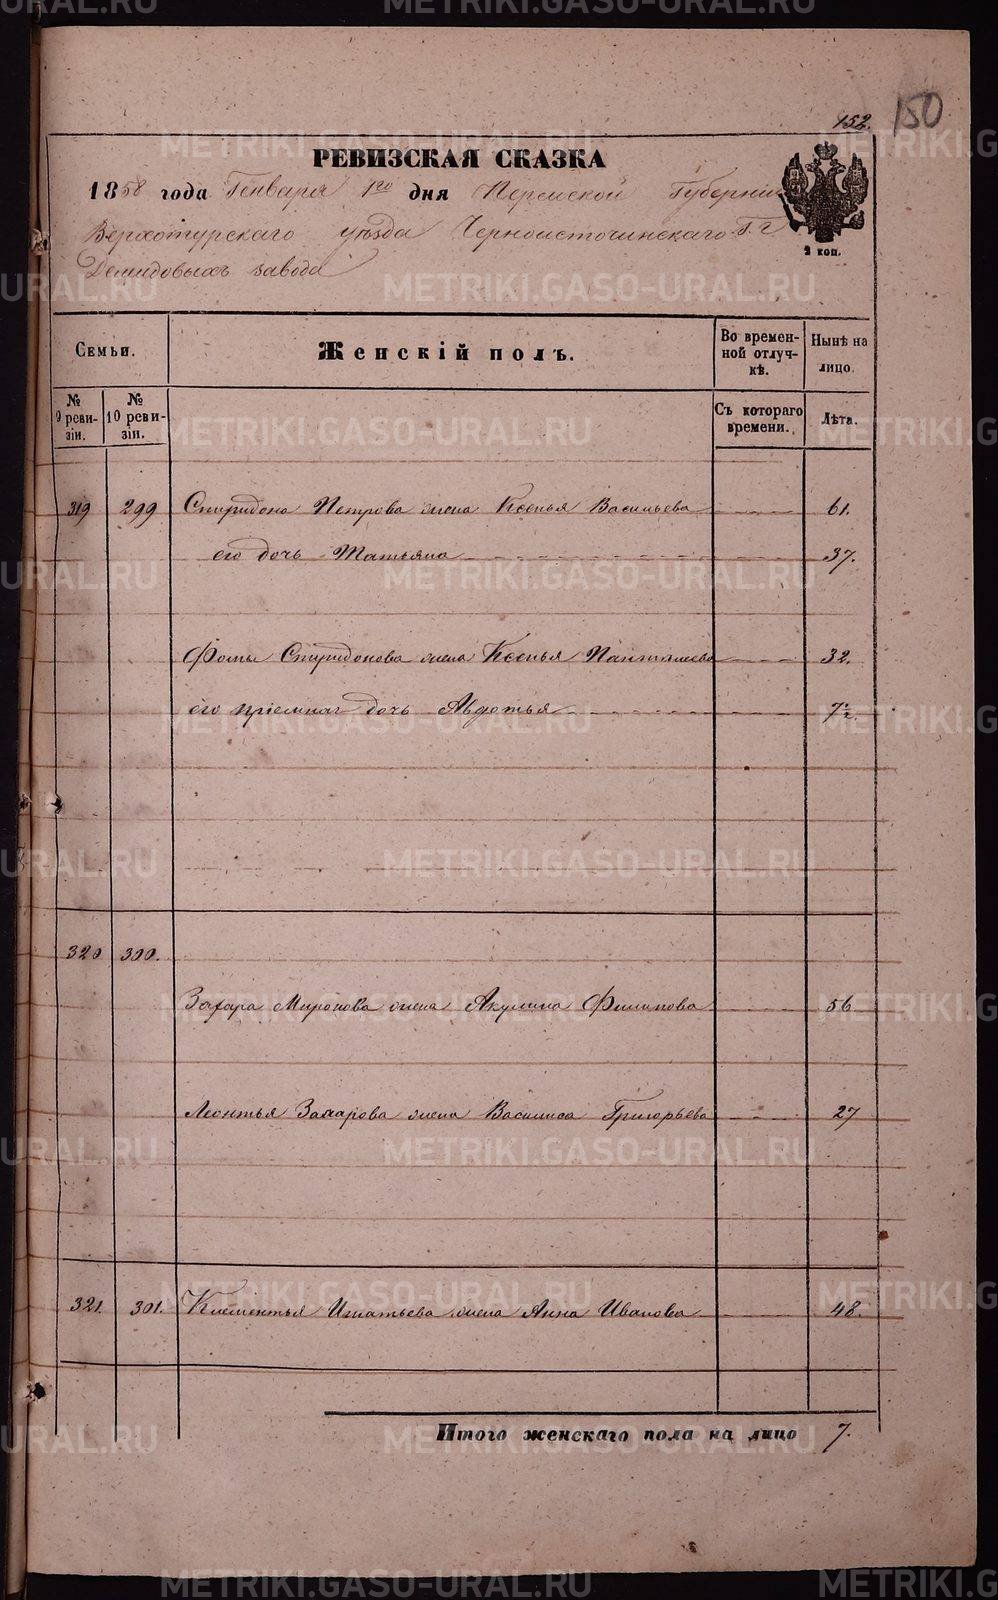 152.
150
РЕВИЗСКАЯ СКАЗКА
1858 года Генваря 1го дня Пермской Губерніи
Верхотурскаго уѣзда Черноисточинскаго Г.г
Демидовыхъ завода
2 коп.
Семьи.
Женскій полъ.
Во временной отлучкѣ.
Нынѣ на лицо.
№ 9 ревизіи.
№ 10 ревизіи.
Съ котораго времени.
Лѣта.
319 299 Спиридона Петрова жена Ксенья Васильева 61.
его дочь Татьяна 37.
Фомы Спиридонова жена Ксенья Панттлеева 32.
его пріемная дочь Авдотья 7½.
320 300.
Захара Миронова жена Акулина Филипова 56
Леонтья Захарова жена Василиса Григорьева 27
321. 301. Клементья Игнатьева жена Анна Иванова 48.
Итого женскаго пола на лицо 7.
METRIKI.GASO-URAL.RU